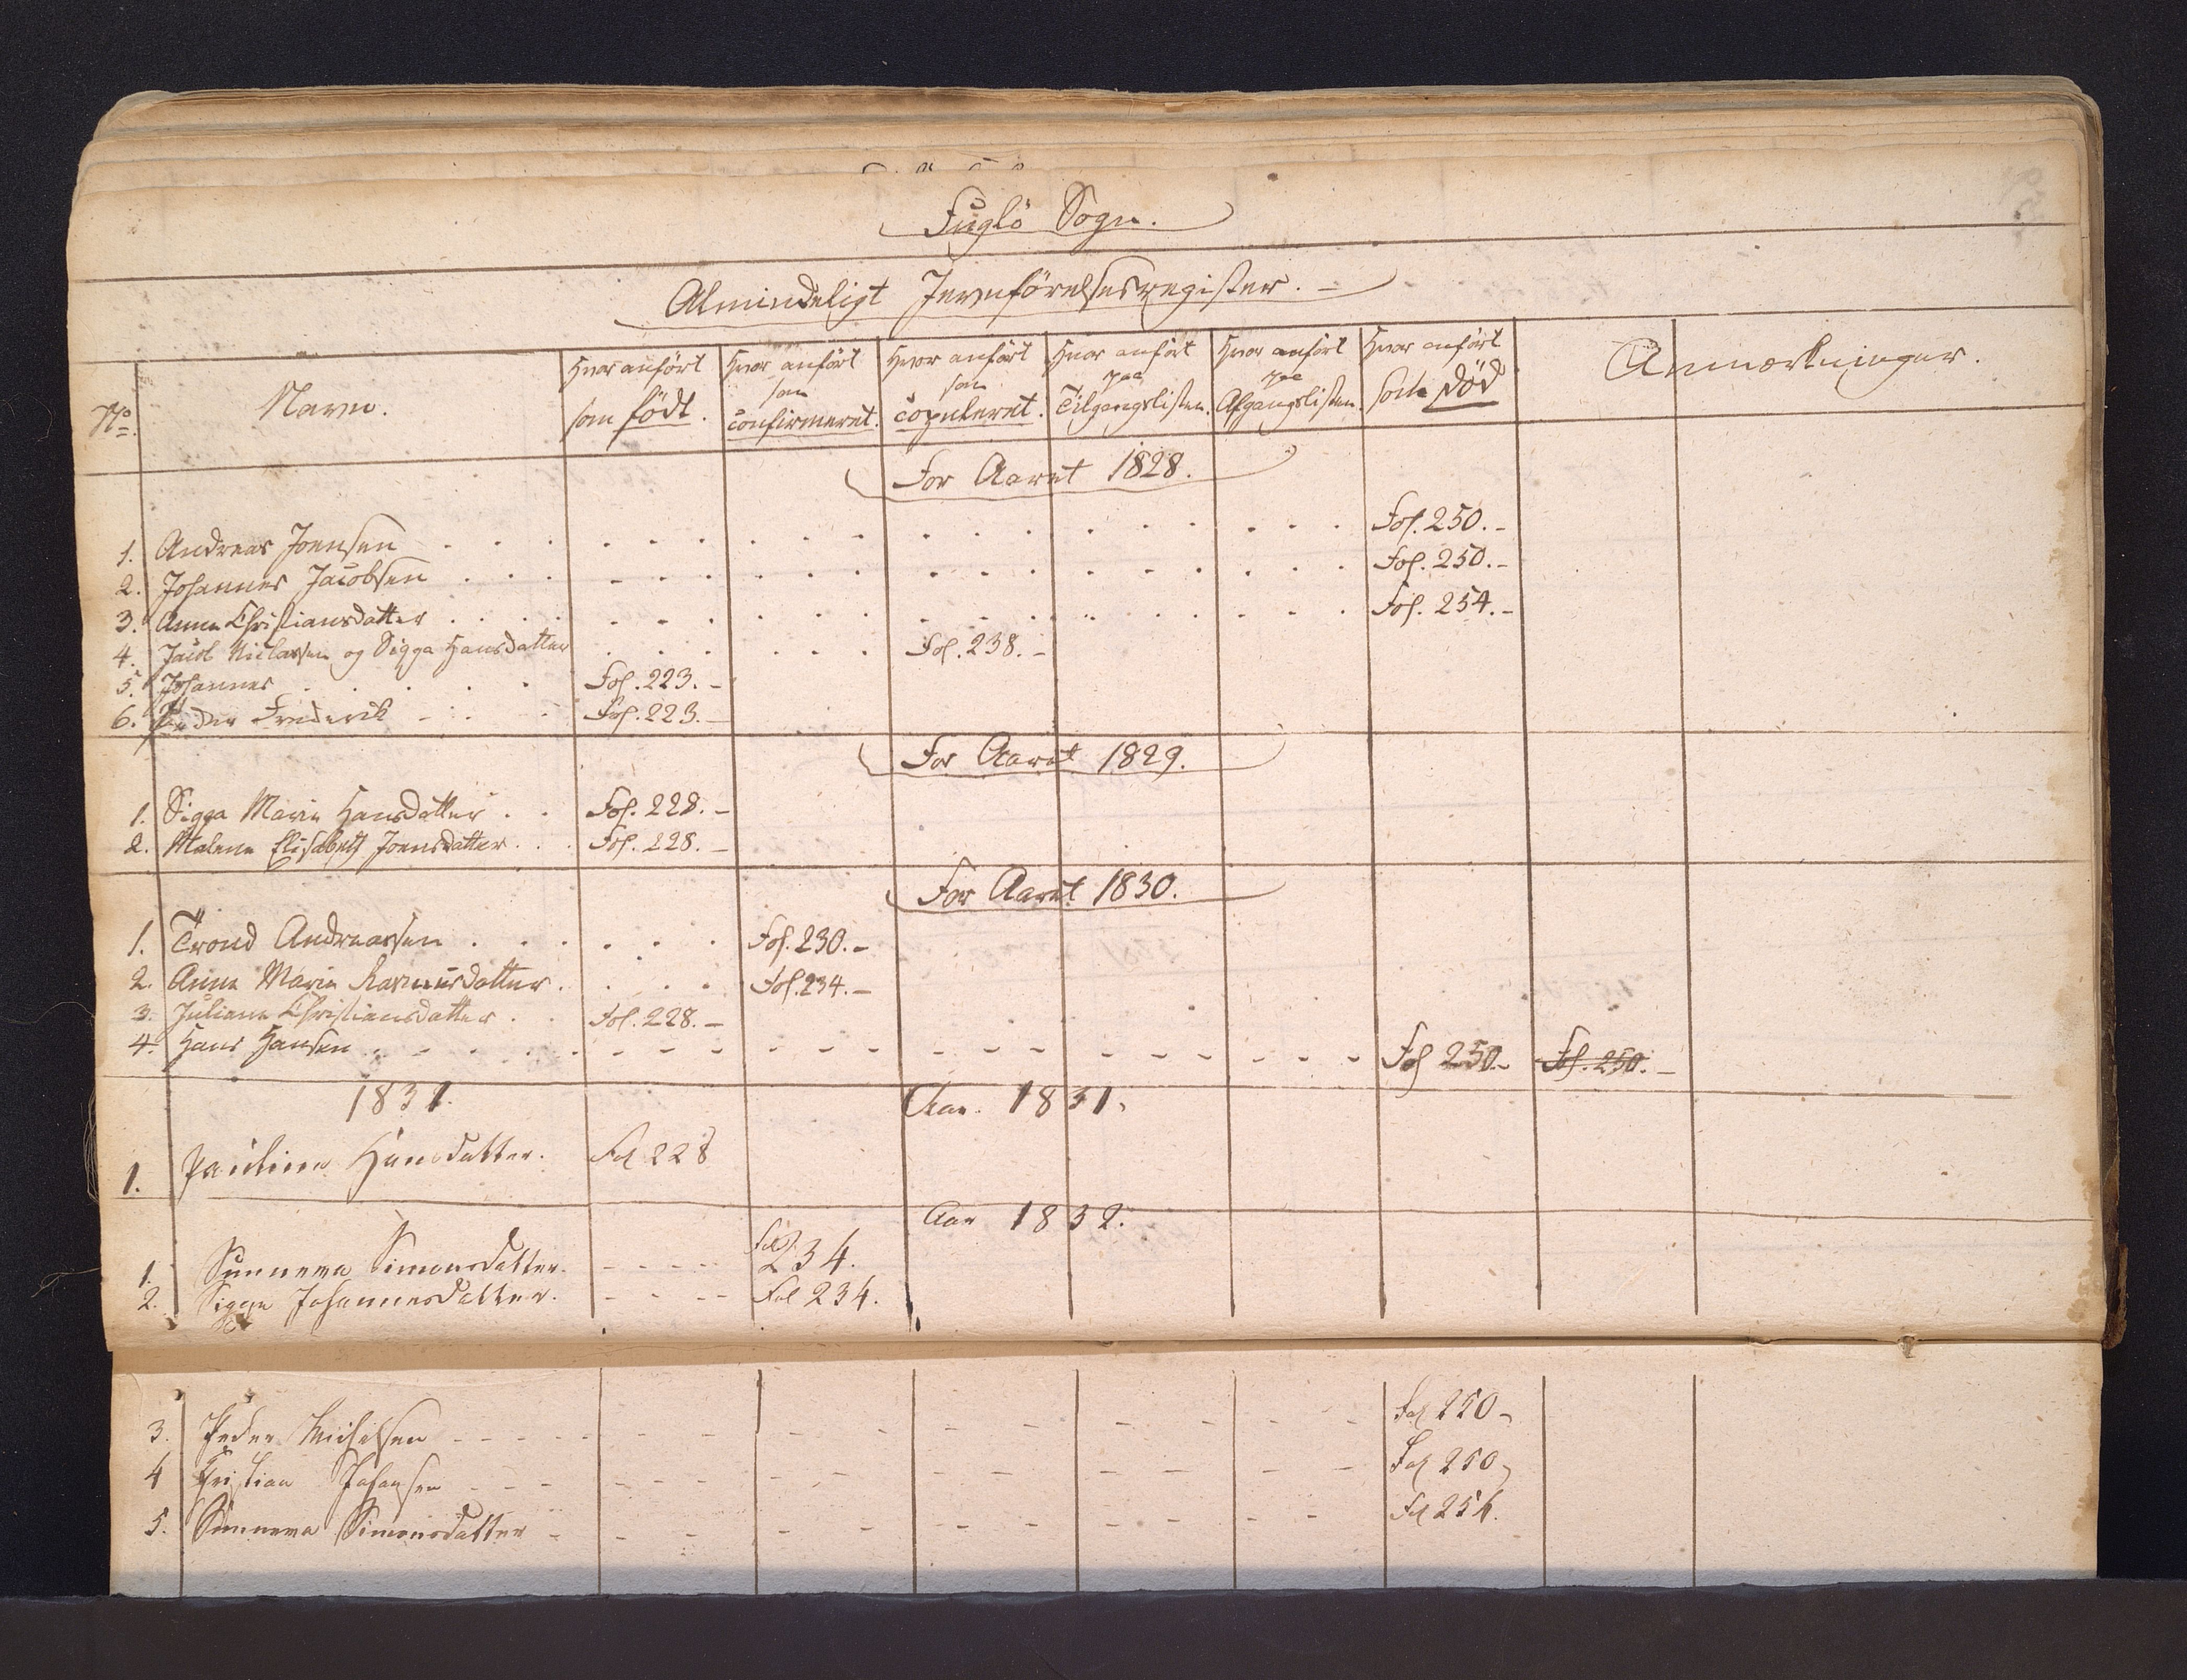 Fuglö Sogn.
Almindeligt Jevnförelsesregister.
No. Navn. Hvor anfört som födt. Hvor anfört som confirmeret. Hvor anfört som copuleret. Hvor anfört paa Tilgangslisten. Hvor anfört paa Afgangslisten. Hvor anfört som Död Anmærkninger.
For Aaret 1828.
1. Andreas Joensen Fol. 250.
2. Johannes Jacobsen Fol. 250.
3. Anna Christiansdatter Fol. 254.
4. Jacob Niclassen og Sigga Hansdatter Fol. 238.
5. Johannes Fol. 223.
6. Peder Frederik Fol. 223.
For Aaret 1829.
1. Sigga Marie Hansdatter Fol. 228.
2. Malene Elisabeth Joensdatter Fol. 228.
For Aaret 1830.
1. Trond Andreassen Fol. 230.
2. Anna Maria Rasmusdatter Fol. 234.
3. Juliane Christiansdatter Fol. 228.
4. Hans Hansen Fol 250. Fol. 250.
1831. Aar. 1831.
1. Pauline Hansdatter. Fol 228
Aar 1832.
1. Sunneva Simonsdatter. Fol 234.
2. Sigga Johannesdatter. Fol 234.
3. Peder Michelsen Fol 250
4 Christian Johansen Fol 250
5. Sunneva Simonsdatter Fol 254.